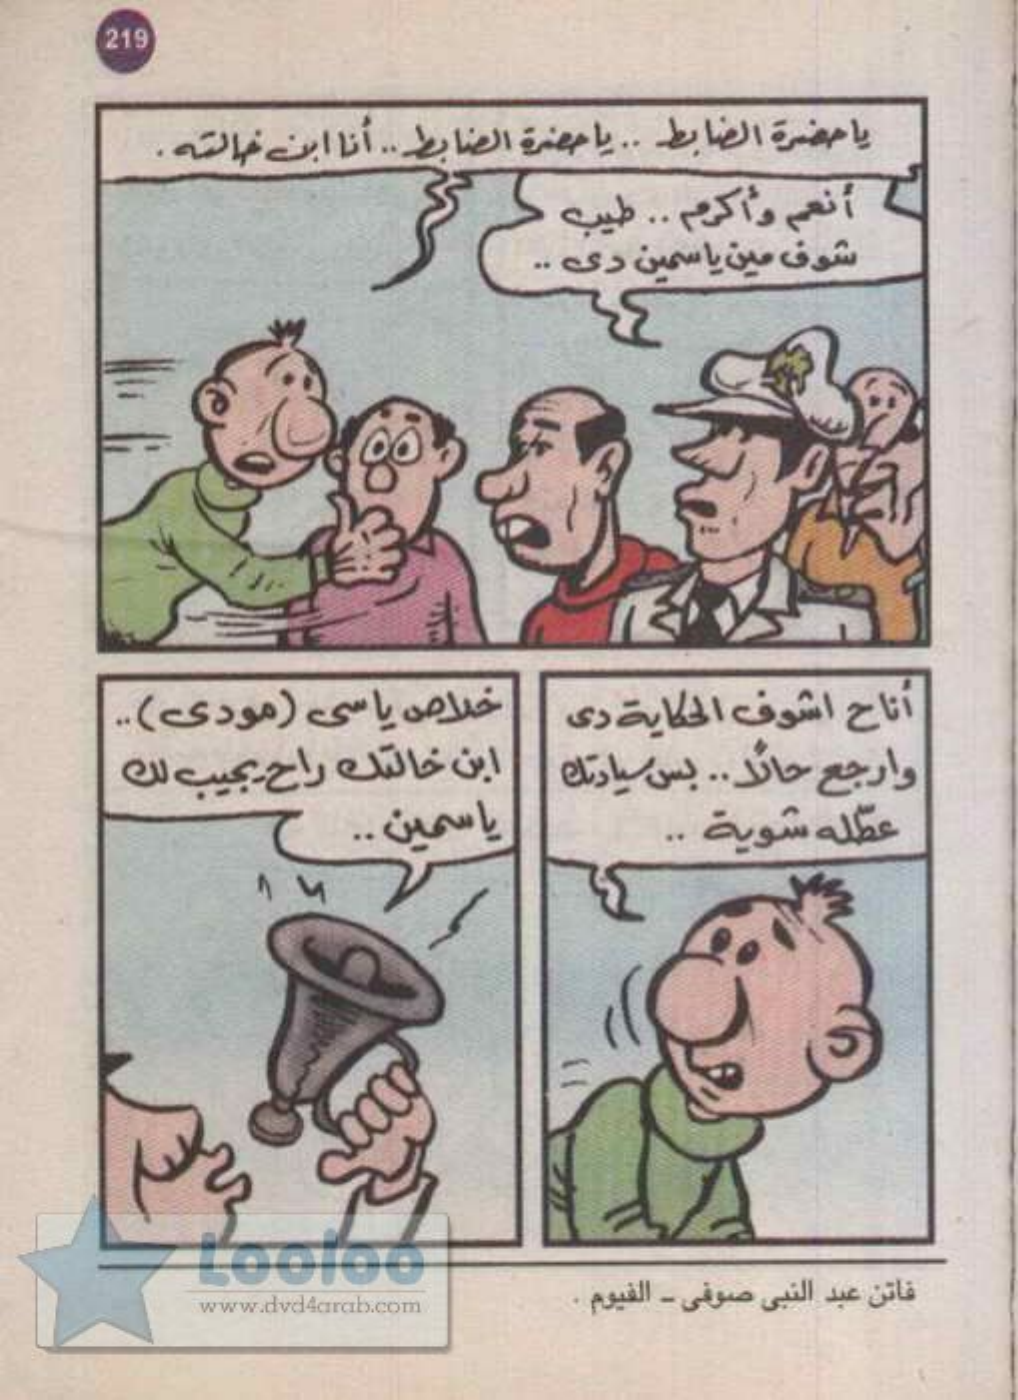 219
يا حضرة الضابط .. يا حضرة الضابط .. أنا ابن خالته .
أنعم وأكرم .. طيب
شوف مين ياسمين دى ..
أنا ح اشوف الحكاية دى
وارجع حالًا .. بس سيادتك
عطّله شوية ..
خلاص يا سى (مودى) ..
ابن خالتك راح يجيب لك
ياسمين ..
فاتن عبد النبى صوفى ــ الفيوم .
Looloo
www.dvd4arab.com